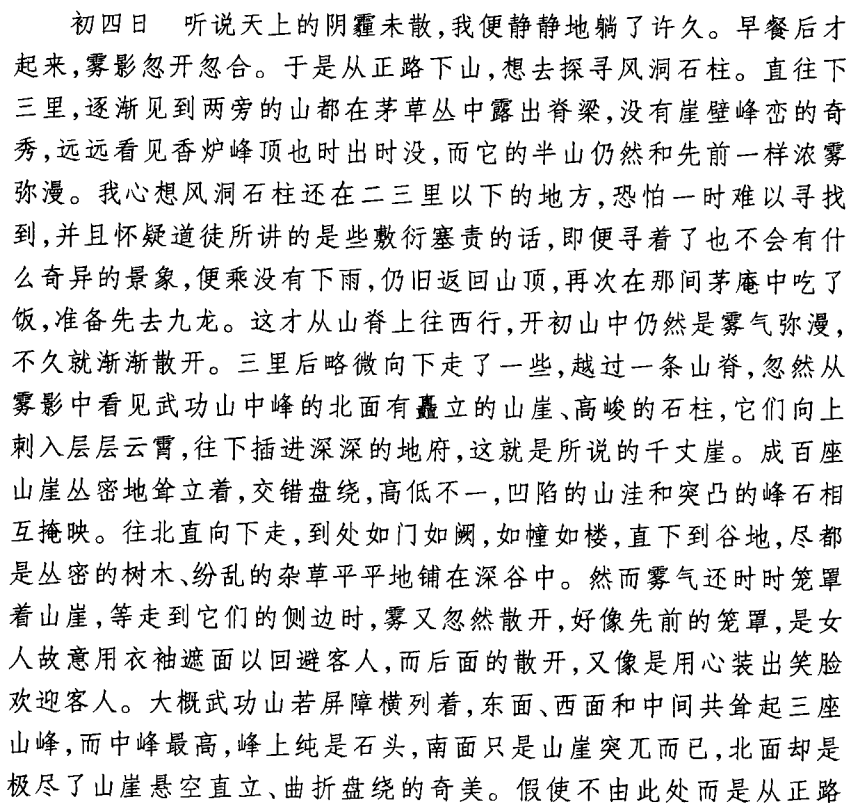 初四日　听说天上的阴霾未散,我便静静地躺了许久。早餐后才
起来,雾影忽开忽合。于是从正路下山,想去探寻风洞石柱。直往下
三里,逐渐见到两旁的山都在茅草丛中露出脊梁,没有崖壁峰峦的奇
秀,远远看见香炉峰顶也时出时没,而它的半山仍然和先前一样浓雾
弥漫。我心想风洞石柱还在二三里以下的地方,恐怕一时难以寻找
到,并且怀疑道徒所讲的是些敷衍塞责的话,即便寻着了也不会有什
么奇异的景象,便乘没有下雨,仍旧返回山顶,再次在那间茅庵中吃了
饭,准备先去九龙。这才从山脊上往西行,开初山中仍然是雾气弥漫,
不久就渐渐散开。三里后略微向下走了一些,越过一条山脊,忽然从
雾影中看见武功山中峰的北面有矗立的山崖、高峻的石柱,它们向上
刺入层层云霄,往下插进深深的地府,这就是所说的千丈崖。成百座
山崖丛密地耸立着,交错盘绕,高低不一,凹陷的山洼和突凸的峰石相
互掩映。往北直向下走,到处如门如阙,如幢如楼,直下到谷地,尽都
是丛密的树木、纷乱的杂草平平地铺在深谷中。然而雾气还时时笼罩
着山崖,等走到它们的侧边时,雾又忽然散开,好像先前的笼罩,是女
人故意用衣袖遮面以回避客人,而后面的散开,又像是用心装出笑脸
欢迎客人。大概武功山若屏障横列着,东面、西面和中间共耸起三座
山峰,而中峰最高,峰上纯是石头,南面只是山崖突兀而已,北面却是
极尽了山崖悬空直立、曲折盘绕的奇美。假使不由此处而是从正路